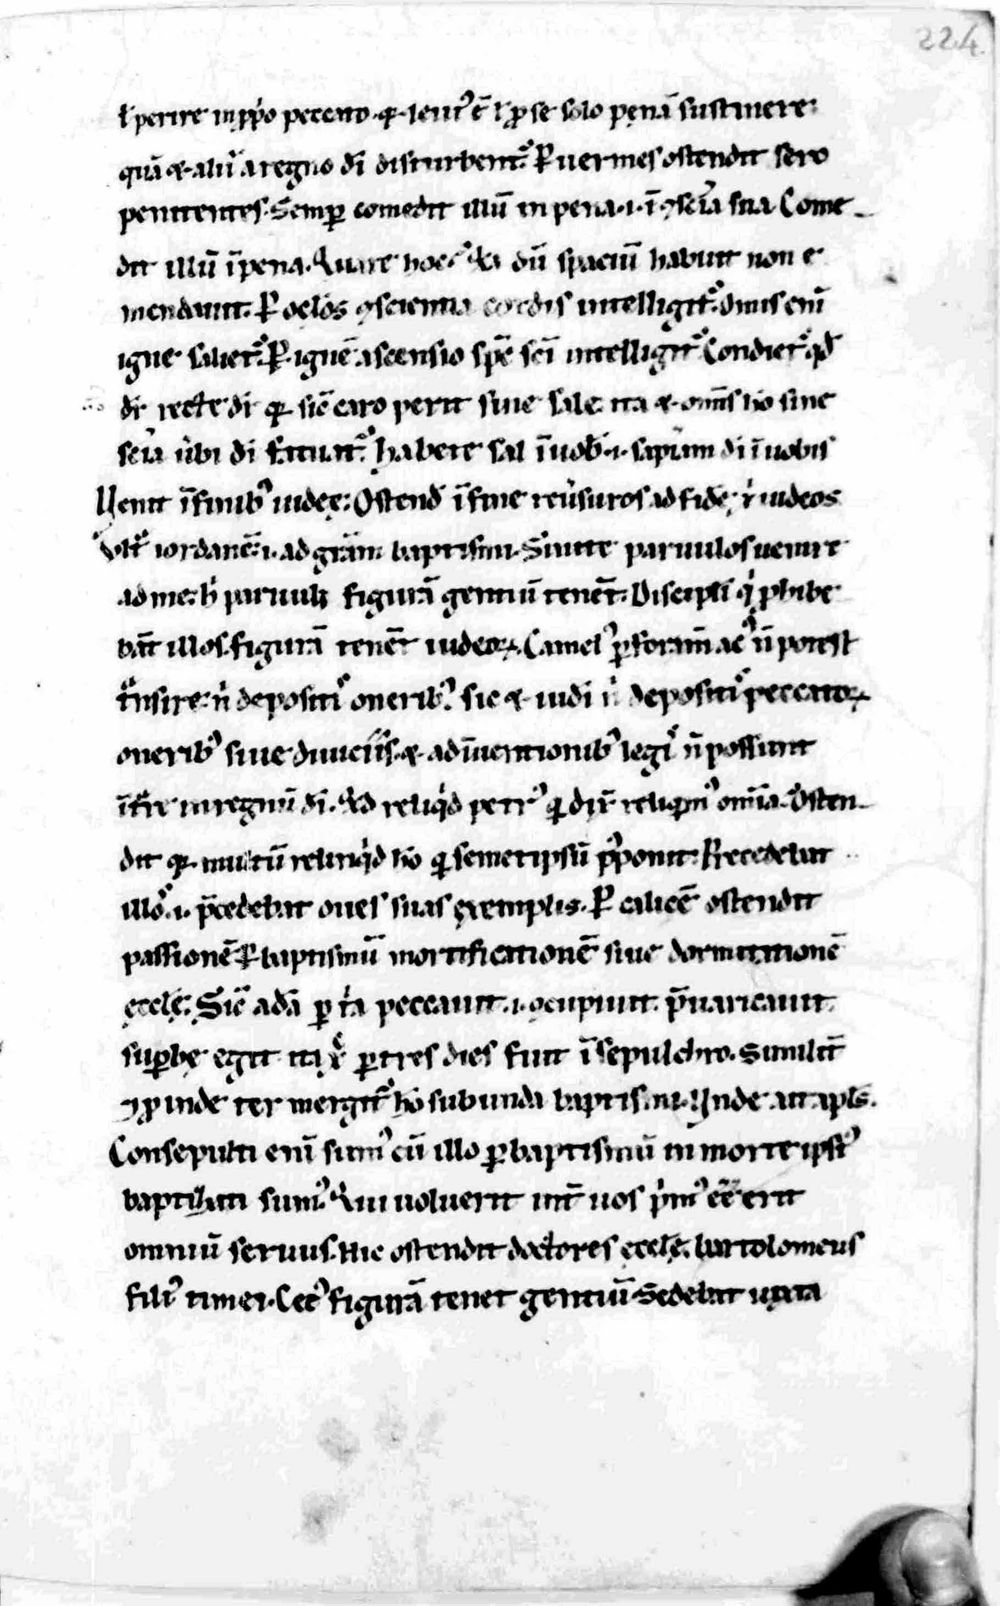 224.
ł perire in ꝓp̓o peccato .qꝫ. leui᷒ ē ł ꝓ se solo penā sustinere.
quā ⁊ aliū a regno dī disturbent᷒. P uermes ostendit sero
penitentes. Semꝑ comedit illū in pena .i. ī ꝯscīa sua. Come-
dit illū ī pena. Quare hoc? Qa dū spaciū habuit non e
mendauit. P oclōs ꝯscientia cordis intelligit᷒. Omīs enī
igne saliet᷒. P ignē ascensio spē scī intelligit᷒. Condiet᷒ qd̄
dī recte di qꝫ sic̄ caro perit sine sale ita ⁊ omīs hō sine
scīa ubi di fatuat᷒. habete sal ī uob̄ .i. sapiam di ī uobis
Uenit ī finib᷒ iudeę. Ostend̄ ī fine reūsuros ad fidē iudeos
Vlt᷒ iordanē .i. ad grām baptismi. Sinite paruulos uenire
ad me. h̓ paruuli figurā gentiū tenēt. Discipli q̓ phibe
bāt illos figurā tenēt iudeoꝝ. Camel᷒ ꝑ foramī ac᷒ n̄ potest
t̓nsire n̓ depositi᷒ onerib᷒. sic ⁊ iudi n̓ depositi᷒ peccatoꝝ
onerib᷒ siue diuiciis ⁊ adīuentionib᷒ legi᷒ n̄ possunt
īt̓re in regnū di. Qd reliqd petr᷒ q dix̄ reliqm᷒ omīa. Osten-
dit qꝫ multū relinqd hō q semetipsū p̓ponit. Precedebat
illo᷒ .i. p̄cedebat oues suas exemplis. P calicē ostendit
passionē P baptismū mortificationē siue dormitationē
eccłę. Sic̄ adā ꝑ t̓a peccauit .i. ꝯcupiuit. p̄uaricauit.
suꝑbe egit ita x̄ ꝑ tres dies fuit ī sepulchro. Similit̄
⁊ ꝓinde ter mergit᷒ hō sub unda baptismi. Unde ait apłs.
Consepulti enī sum᷒ cū illo ꝑ baptismū in morte ipsi᷒
baptizati sum᷒. Qui uoluerit int̄ uos p̓m᷒ eē erit
omniū seruus. Hic ostendit doctores eccłę. bartolomeus
fili᷒ timei. Cec᷒ figurā tenet gentiū. Sedebat iuxta